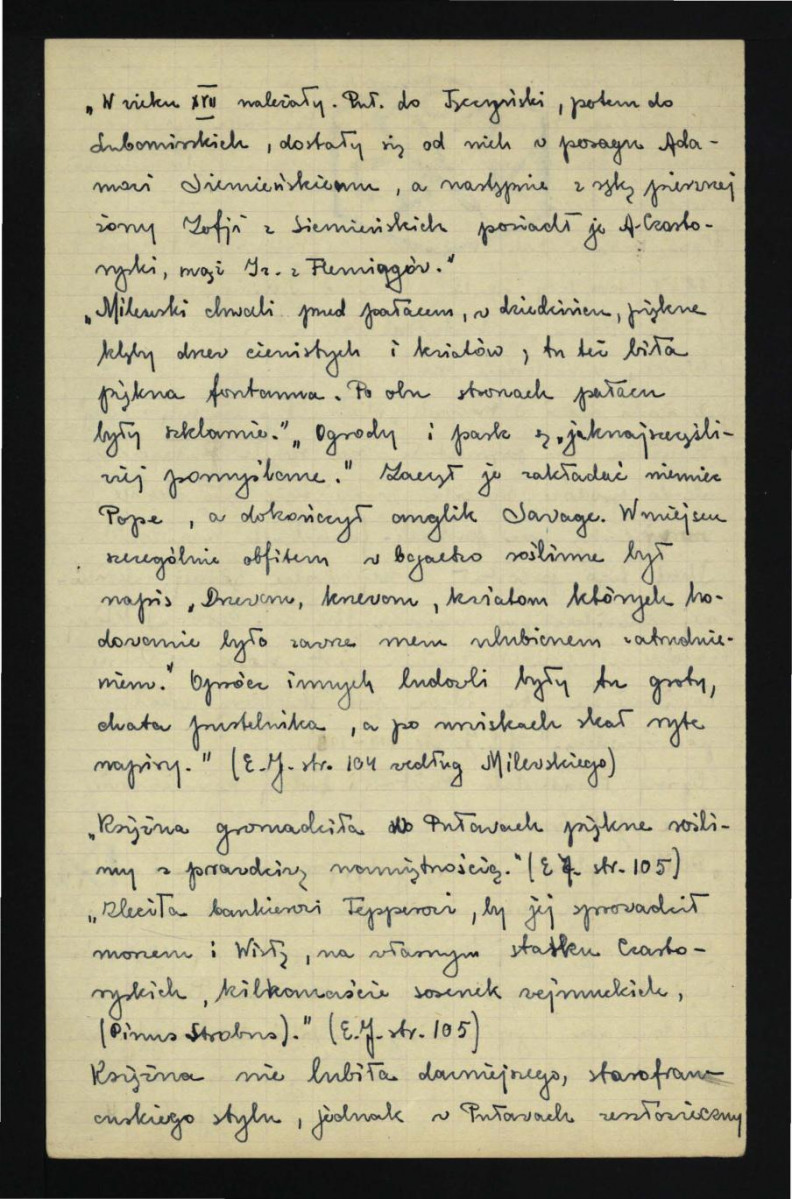 „W wieku XVII należały. Puł. do Tęczyński, potem do
Lubomirskich, dostały się od nich w posagu Ada-
mowi Siemieńskiemu, a następnie z ręką pierwszej
żony Zofji z Siemieńskich posiadł je A. Czarto-
ryski, mąż Iz. z Flemiggów."
„Milewski chwali przed pałacem, w dziedzińcu, piękne
kłęby drzew cienistych i kwiatów; tu też biła
piękna fontanna. Po obu stronach pałacu
były szklarnie." „Ogrody i park są „jaknajszczęśli-
wiej pomyślane." Zaczął je zakładać niemiec
Pope, a dokończył anglik Savage. W miejscu
szczególnie obfitem w bogactwo roślinne był
napis „Drzewom, krzewom, kwiatom których ho-
dowanie było zawsze mem ulubionem zatrudnie-
niem." Oprócz innych budowli były tu groty,
chata pustelnika, a po urwiskach skał ryte
napisy." (E.J. str. 104 według Milewskiego)
„Księżna gromadziła w Puławach piękne rośli-
ny z prawdziwą namiętnością." (E.J. str. 105)
„Zleciła bankierowi Tepperowi, by jej sprowadził
morzem i Wisłą, na własnym statku Czarto-
ryskich, kilkanaście sosenek wejmuckich,
(Pinus Strobus)." (E.J. str. 105)
Księżna nie lubiła dawniejszego, starofran-
cuskiego stylu, jednak w Puławach zeszłowieczny